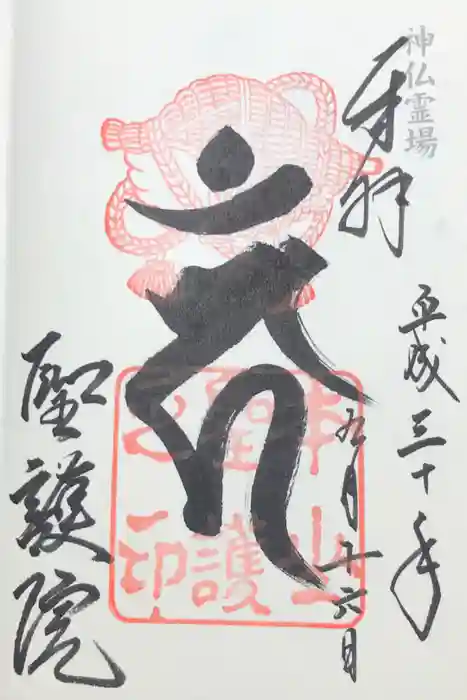 神仏霊場
奉拝
平成三十年
九月十六日
本山
聖護
之印
聖護院